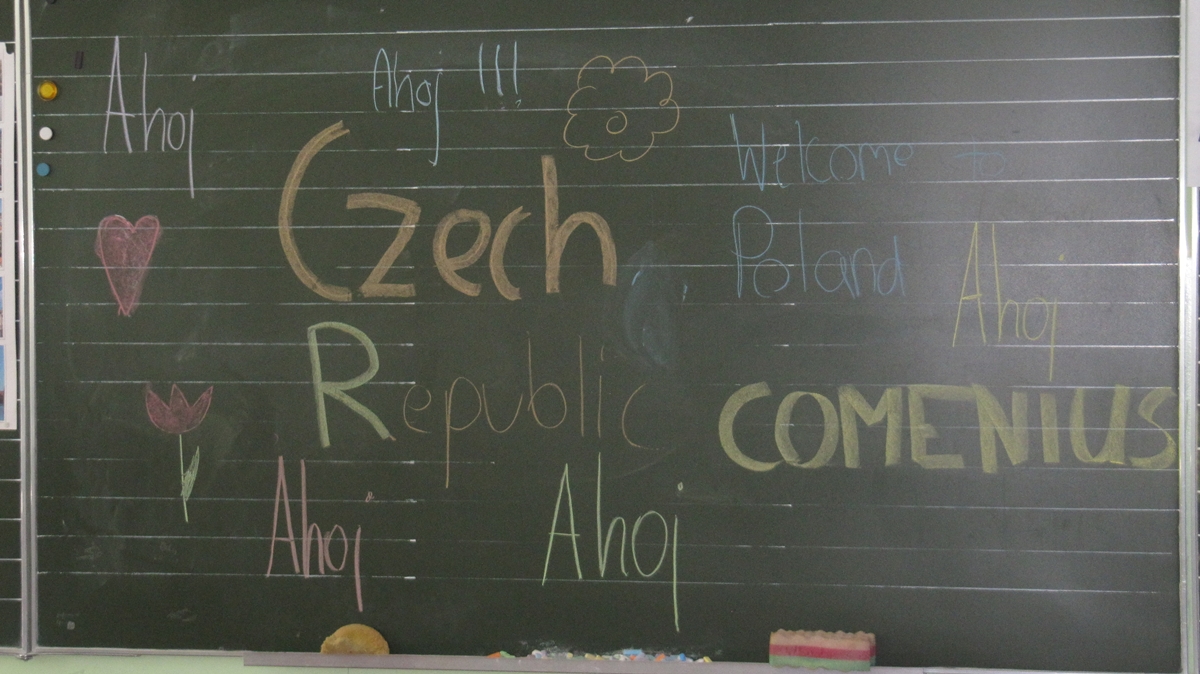 Ahoj
Ahoj !!!
Welcome to
Poland
Czech
Republic
Ahoj
COMENIUS
Ahoj
Ahoj